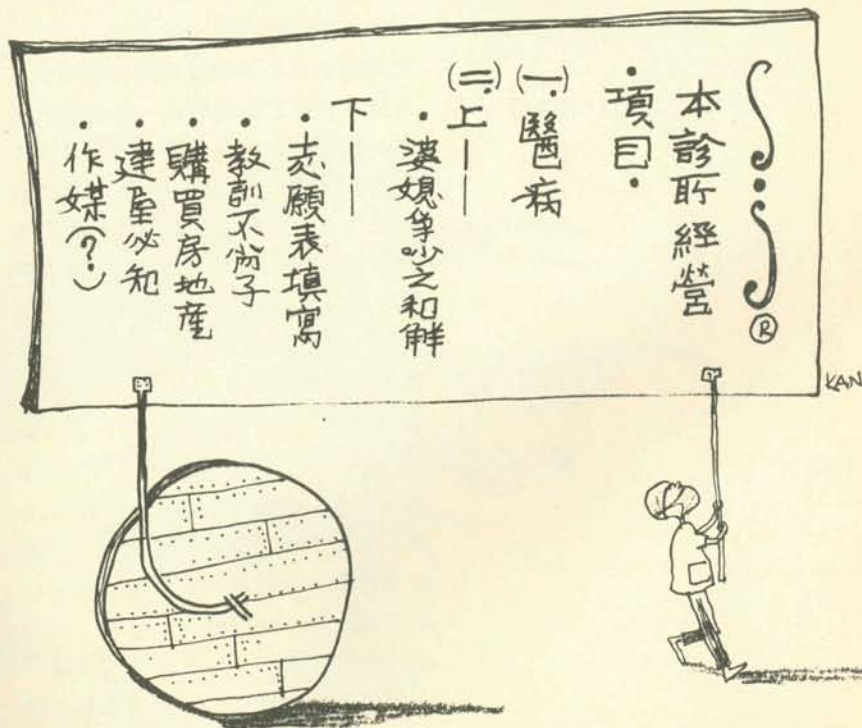 本診所經營
·項目·
(一)醫病
(二)上——
·婆媳爭吵之和解
下——
·志願表填寫
·教訓不肖子
·購買房地產
·建屋必知
·作媒(?)
®
KAN